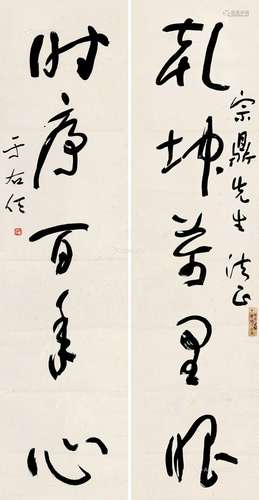 乾坤萬里眼
宗鼎先生法正
时序百年心
于右任